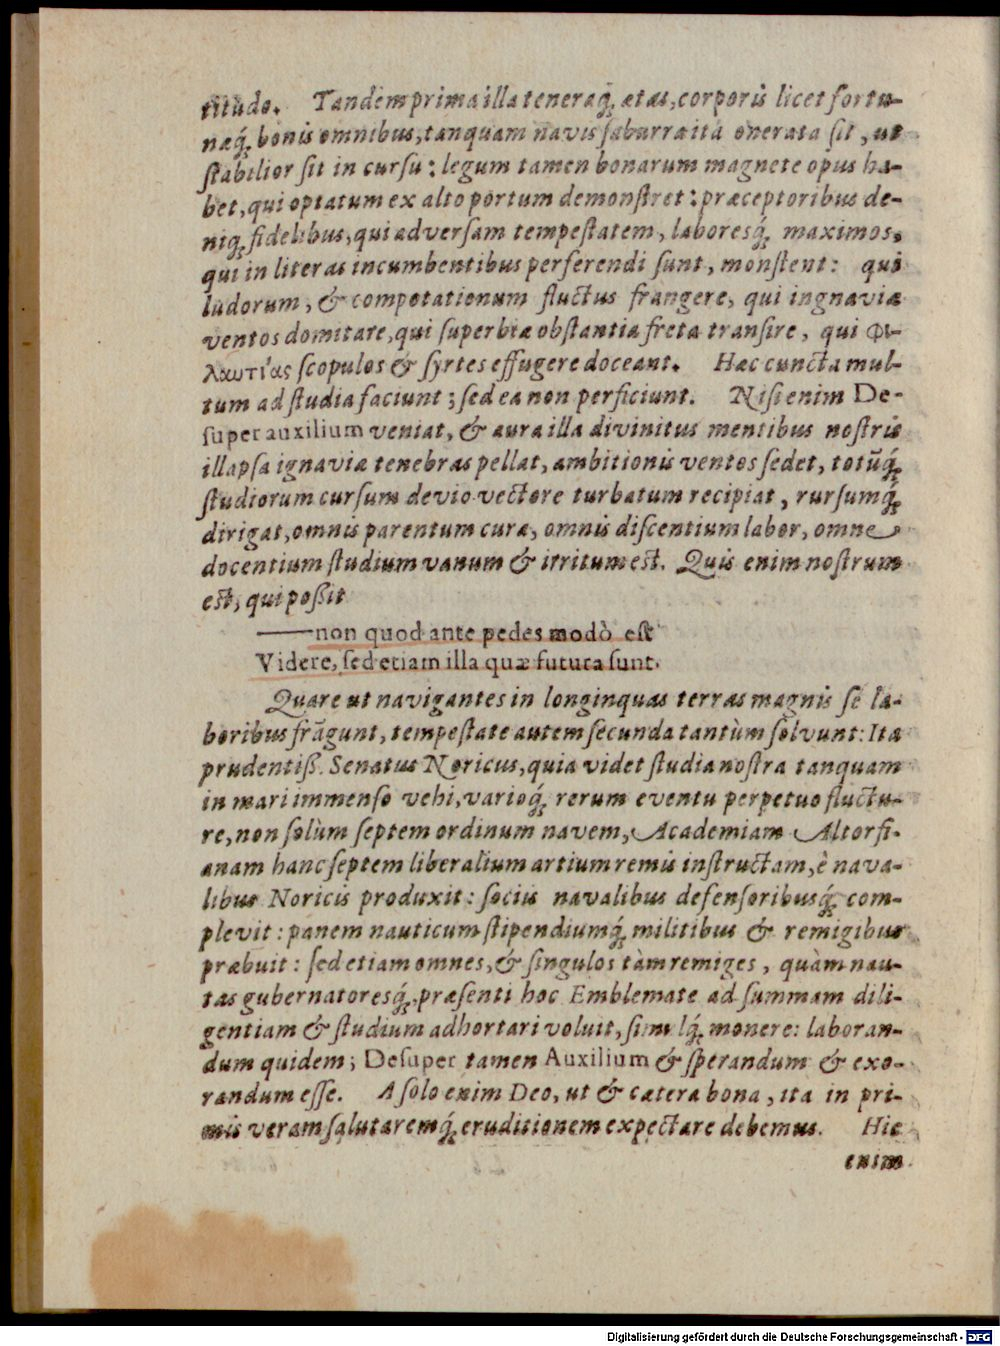 titudo. Tandem prima illa teneraq́; ætas, corporis licet fortu-
næq́; bonis omnibus, tanquam navis saburra ita onerata sit, ut
ſtabilior sit in cursu: legum tamen bonarum magnete opus ha-
bet, qui optatum ex alto portum demonſtret: præceptoribus de-
niq; fidelibus, qui adversam tempeſtatem, laboresq́; maximos,
qui in literas incumbentibus perferendi sunt, monſtent: qui
ludorum, & compotationum fluctus frangere, qui ingnaviæ
ventos domitare, qui superbiæ obſtantia freta transire, qui φι-
λαωτίας scopulos & syrtes effugere doceant. Hæc cuncta mul-
tum ad ſtudia faciunt; sed ea non perficiunt. Nisi enim De-
ſuper auxilium veniat, & aura illa divinitus mentibus noſtris
illapsa ignaviæ tenebras pellat, ambitionis ventos sedet, totũq́;
ſtudiorum cursum devio vectore turbatum recipiat, rursumq́;
dirigat, omnis parentum cura, omnis discentium labor, omne
docentium ſtudium vanum & irritum est. Quis enim noſtrum
est, qui poßit
——non quod ante pedes modò eſt
Videre, ſed etiam illa quæ futura ſunt.
Quare ut navigantes in longinquas terras magnis se la-
boribus frãgunt, tempeſtate autem secunda tantùm solvunt: Ita
prudentiß. Senatus Noricus, quia videt ſtudia noſtra tanquam
in mari immenso vehi, varioq́; rerum eventu perpetuo fluctu-
re, non solùm septem ordinum navem, Academiam Altorfi-
anam hanc septem liberalium artium remis inſtructam, è nava-
libus Noricis produxit: sociis navalibus defensoribusq́; com-
plevit: panem nauticum ſtipendiumq́; militibus & remigibus
præbuit: sed etiam omnes, & singulos tàm remiges, quàm nau-
tas gubernatoresq́; præsenti hoc Emblemate ad summam dili-
gentiam & ſtudium adhortari voluit, simulq́; monere: laboran-
dum quidem; Deſuper tamen Auxilium & sperandum & exo-
randum esse. A solo enim Deo, ut & cætera bona, ita in pri-
mis veram salutaremq́; eruditionem expectare debemus. Hic
enim
Digitalisierung gefördert durch die Deutsche Forschungsgemeinschaft - DFG